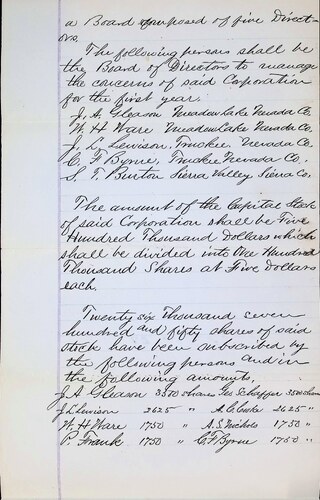 a Board composed of five Direct-
ors.
The following persons shall be
the Board of Directors to manage
the concerns of said Corporation
for the first year.
J. A. Gleason Meadow Lake Nevada Co.
W. H. Ware Meadow Lake Nevada Co.
J. L. Lewison, Truckee. Nevada Co.
C. F. Byrne, Truckee Nevada Co.
S. T. Burton Sierra Valley Sierra Co.
The amount of the Capital Stock
of said Corporation shall be Five
Hundred Thousand Dollars which
shall be divided into One Hundred
Thousand Shares at Five Dollars
each.
Twenty six Thousand seven
hundred and fifty shares of said
stock have been subscribed by
the following persons and in
the following amounts,
J. A Gleason 3500 shares Schaffer 3500 shares
J. L Lewison 2625 " A. C. 2625 "
W. H Ware 1750 " A. S. Nichols 1750 "
P. Frank 1750 " C. F Byrne 1750 "